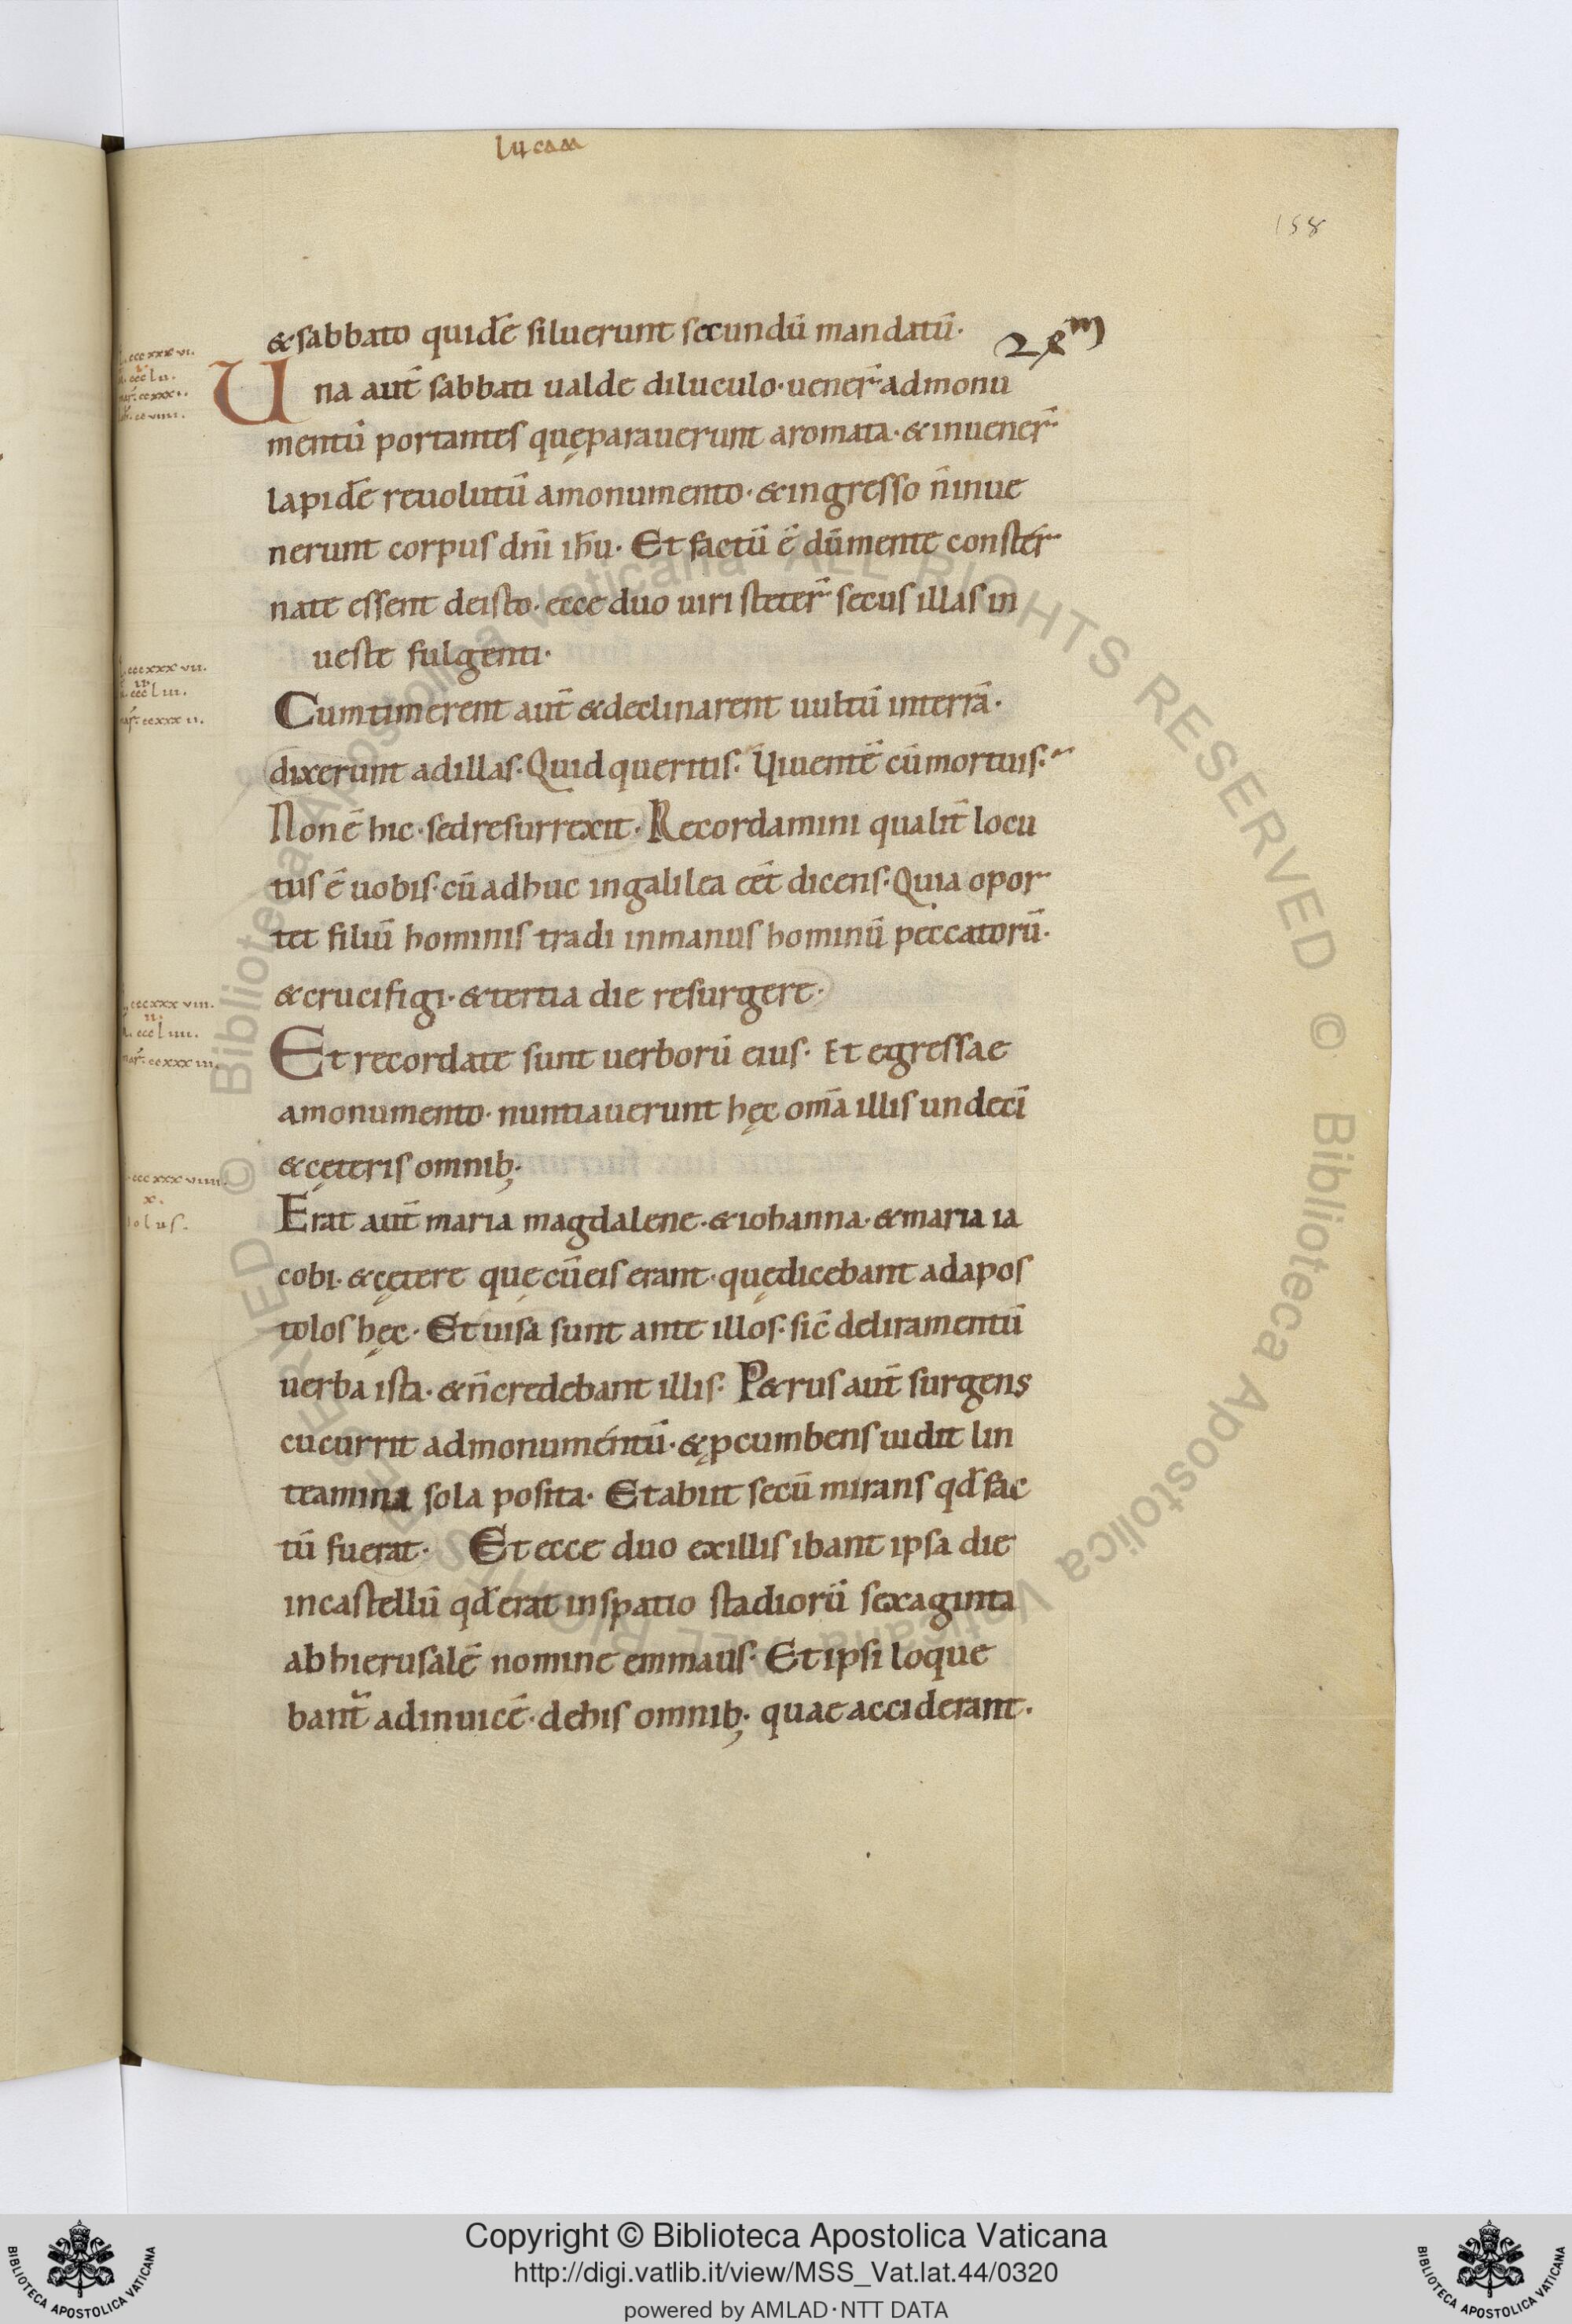 lucam
158
&sabbato quidē siluerunt secundū mandatū·
28m
Una aut̄ sabbati ualde diluculo·uener̄ admonu
mentū portantes quęparauerunt aromata·&inuener̄
lapidē reuolutū amonumento·&ingresso n̄inue
nerunt corpus dn̄i ih̄u· Et factū ē dūmente conster
nate essent deisto·ecce duo uiri steter̄ secus illas in
ueste fulgenti·
Cumtimerent aut̄ &declinarent uultū interrā·
dixerunt adillas·Quid queritis· Uiuentē cūmortuis·
Non ē hic·sedresurrexit·Recordamini qualit̄ locu
tus ē uobis·cū adhuc ingalilea eēt dicens·Quia opor
tet filiū hominis tradi inmanus hominū peccatorū·
&crucifigi·&tertia die resurgere·
Et recordate sunt uerborū eius· Et egressae
amonumento·nuntiauerunt hęc om̄a illis undecī
&cęteris omnib;
Erat aut̄ maria magdalene·&iohanna·&maria ia
cobi·&cętere quę cūeis erant·quędicebant adapos
tolos hęc· Et uisa sunt ante illos·sic̄ deliramentū
uerba ista·&n̄credebant illis· P&rus aut̄ surgens
cucurrit admonumentū·&pcumbens uidit lin
teamina sola posita· Etabiit secū mirans qđ fac
tū fuerat· Et ecce duo exillis ibant ipsa die
incastellū qđ erat inspatio stadiorū sexaginta
abhierusalē nomine emmaus· Etipsi loque
bant̄ adinuicē·dehis omnib; quae acciderant·
ccc xxx vi.
ccc lii.
cc xxx i.
cc viiii.
ccc xxx vii.
ccc liii.
cc xxx ii.
ccc xxx viii.
ii.
ccc liiii.
cc xxx iii.
ccc xxx viiii.
x.
olus.
Copyright © Biblioteca Apostolica Vaticana
http://digi.vatlib.it/view/MSS_Vat.lat.44/0320
powered by AMLAD·NTT DATA
BIBLIOTECA APOSTOLICA VATICANA
BIBLIOTECA APOSTOLICA VATICANA
© Biblioteca Apostolica Vaticana ALL RIGHTS RESERVED © Biblioteca Apostolica Vaticana ALL RIGHTS RESERVED